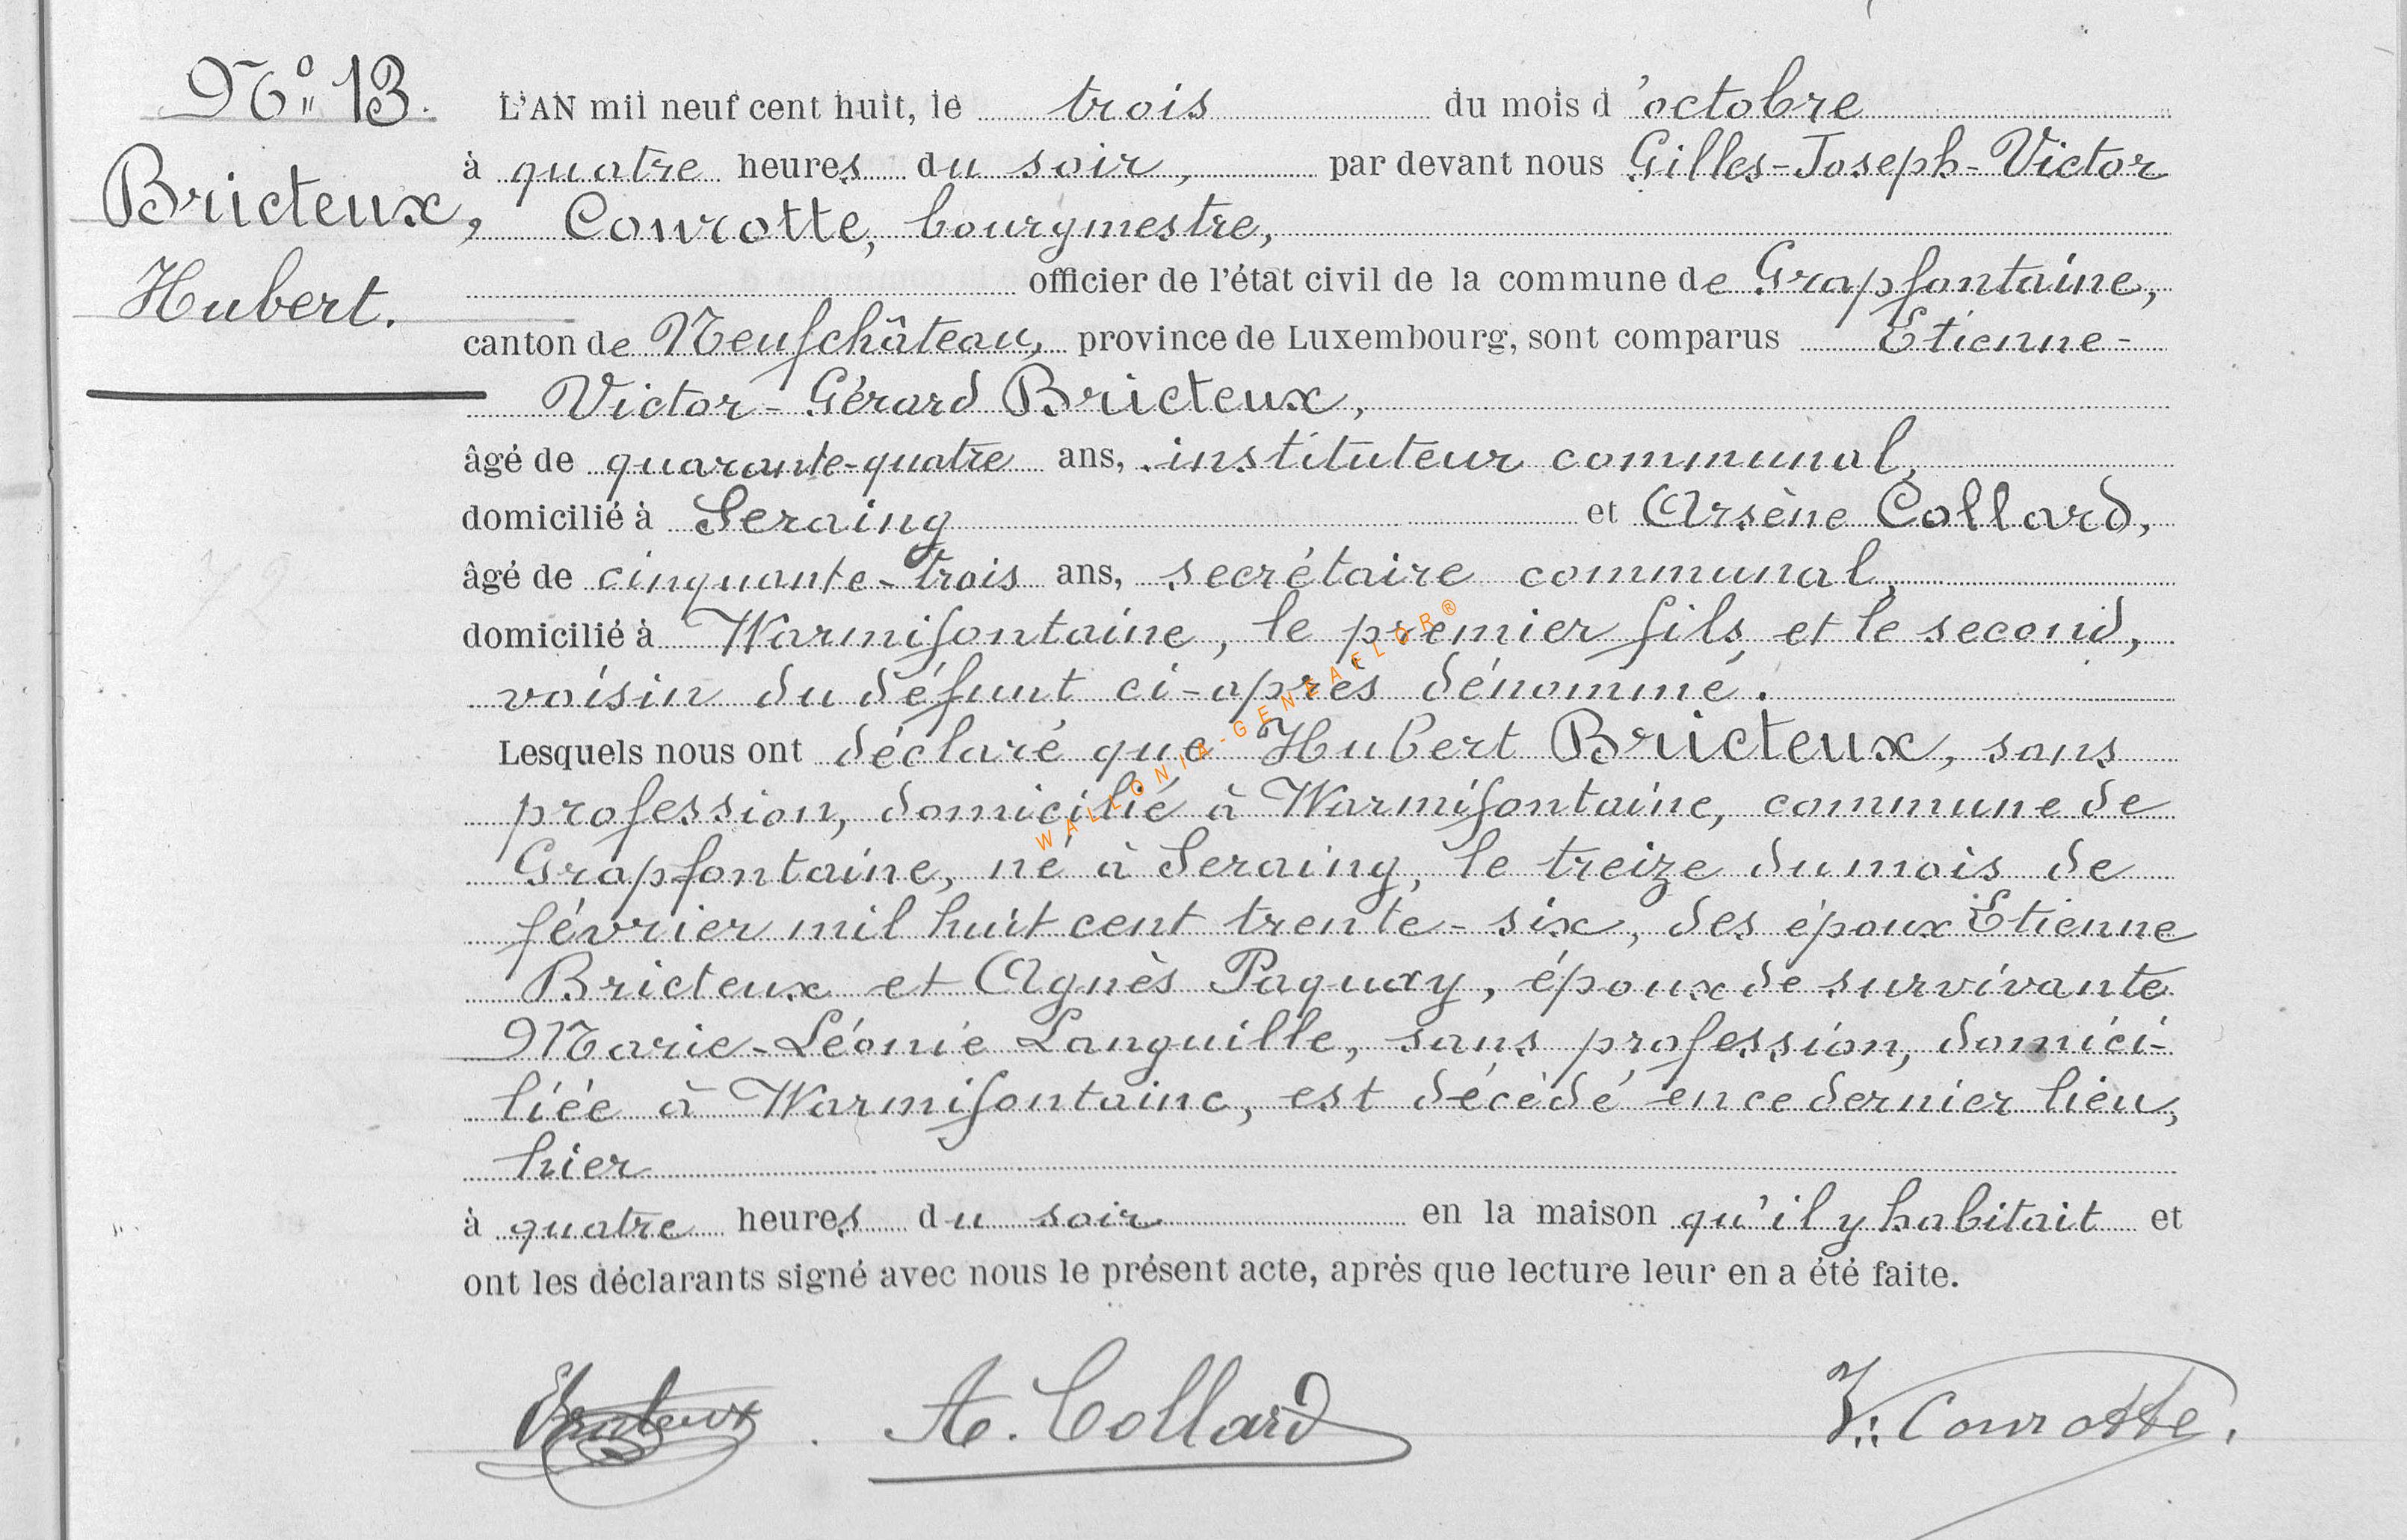 N° 13.
Bricteux,
Hubert.
L'AN mil neuf cent huit, le trois du mois d'octobre
à quatre heures du soir, par devant nous Gilles-Joseph-Victor
Conrotte, bourgmestre,
officier de l'état civil de la commune de Grapfontaine,
canton de Neufchâteau, province de Luxembourg, sont comparus Etienne-
Victor-Gérard Bricteux,
âgé de quarante-quatre ans, instituteur communal,
domicilié à Seraing et Arsène Collard,
âgé de cinquante-trois ans, secrétaire communal,
domicilié à Warmifontaine, le premier fils et le second,
voisin du défunt ci-après dénommé.
Lesquels nous ont déclaré que Hubert Bricteux, sans
profession, domicilié à Warmifontaine, commune de
Grapfontaine, né à Seraing, le treize du mois de
février mil huit cent trente-six, des époux Etienne
Bricteux et Agnès Paquay, époux de survivante
Marie-Léonie Languille, sans profession, domici-
liée à Warmifontaine, est décédé en ce dernier lieu,
hier
à quatre heures du soir en la maison qu'il y habitait et
ont les déclarants signé avec nous le présent acte, après que lecture leur en a été faite.
Bricteux. A. Collard V. Conrotte.
WALLONIA-GENEAFLOR®